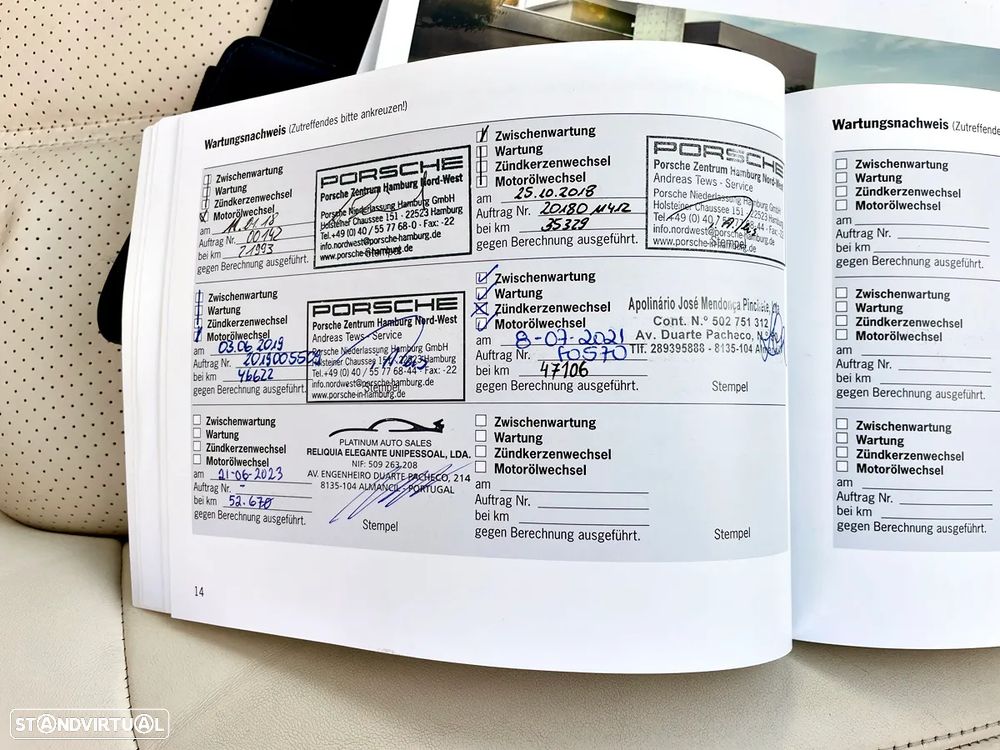 Wartungsnachweis (Zutreffendes bitte ankreuzen!)
Zwischenwartung
Wartung
Zündkerzenwechsel
Motorölwechsel
am 11.01.18
Auftrag Nr. 00142
bei km 21993
gegen Berechnung ausgeführt.
PORSCHE
Porsche Zentrum Hamburg Nord-West
Porsche Niederlassung Hamburg GmbH
Holsteiner Chaussee 151 · 22523 Hamburg
Tel.+49 (0) 40 / 55 77 68-0 · Fax: -22
info.nordwest@porsche-hamburg.de
www.porsche-hamburg.de
Stempel
Zwischenwartung
Wartung
Zündkerzenwechsel
Motorölwechsel
am 25.10.2018
Auftrag Nr.
bei km 35329
gegen Berechnung ausgeführt.
PORSCHE
Porsche Zentrum Hamburg Nord-West
Andreas Tews - Service
Porsche Niederlassung Hamburg
Holsteiner Chaussee 151
Tel.+49 (0) 40
info.nordwest@porsche
www.porsche-in-hamburg.de
Stempel
Zwischenwartung
Wartung
Zündkerzenwechsel
Motorölwechsel
am 03.06.2019
Auftrag Nr.
bei km 46622
gegen Berechnung ausgeführt.
PORSCHE
Porsche Zentrum Hamburg Nord-West
Andreas Tews - Service
Porsche Niederlassung Hamburg GmbH
Holsteiner Chaussee 151 22523 Hamburg
Tel.+49 (0) 40 / 55 77 68-44 · Fax: -22
info.nordwest@porsche-hamburg.de
www.porsche-in-hamburg.de
Stempel
Zwischenwartung
Wartung
Zündkerzenwechsel
Motorölwechsel
am 8-07-2021
Auftrag Nr. F0570
bei km 47106
gegen Berechnung ausgeführt.
Apolinário José Mendonça
Cont. N.º 502 751 312
Av. Duarte Pacheco, N.º
Tlf. 289395888 - 8135-104
Stempel
Zwischenwartung
Wartung
Zündkerzenwechsel
Motorölwechsel
am 21-06-2023
Auftrag Nr. -
bei km 52.670
gegen Berechnung ausgeführt.
PLATINUM AUTO SALES
RELIQUIA ELEGANTE UNIPESSOAL, LDA.
NIF: 509 263 208
AV. ENGENHEIRO DUARTE PACHECO, 214
8135-104 ALMANCIL - PORTUGAL
Stempel
Zwischenwartung
Wartung
Zündkerzenwechsel
Motorölwechsel
am
Auftrag Nr.
bei km
gegen Berechnung ausgeführt.
Stempel
14
Wartungsnachweis (Zutreffende
Zwischenwartung
Wartung
Zündkerzenwechsel
Motorölwechsel
am
Auftrag Nr.
bei km
gegen Berechnung ausgeführt.
Zwischenwartung
Wartung
Zündkerzenwechsel
Motorölwechsel
am
Auftrag Nr.
bei km
gegen Berechnung ausgeführt.
Zwischenwartung
Wartung
Zündkerzenwechsel
Motorölwechsel
am
Auftrag Nr.
bei km
gegen Berechnung ausgeführt.
STANDVIRTUAL